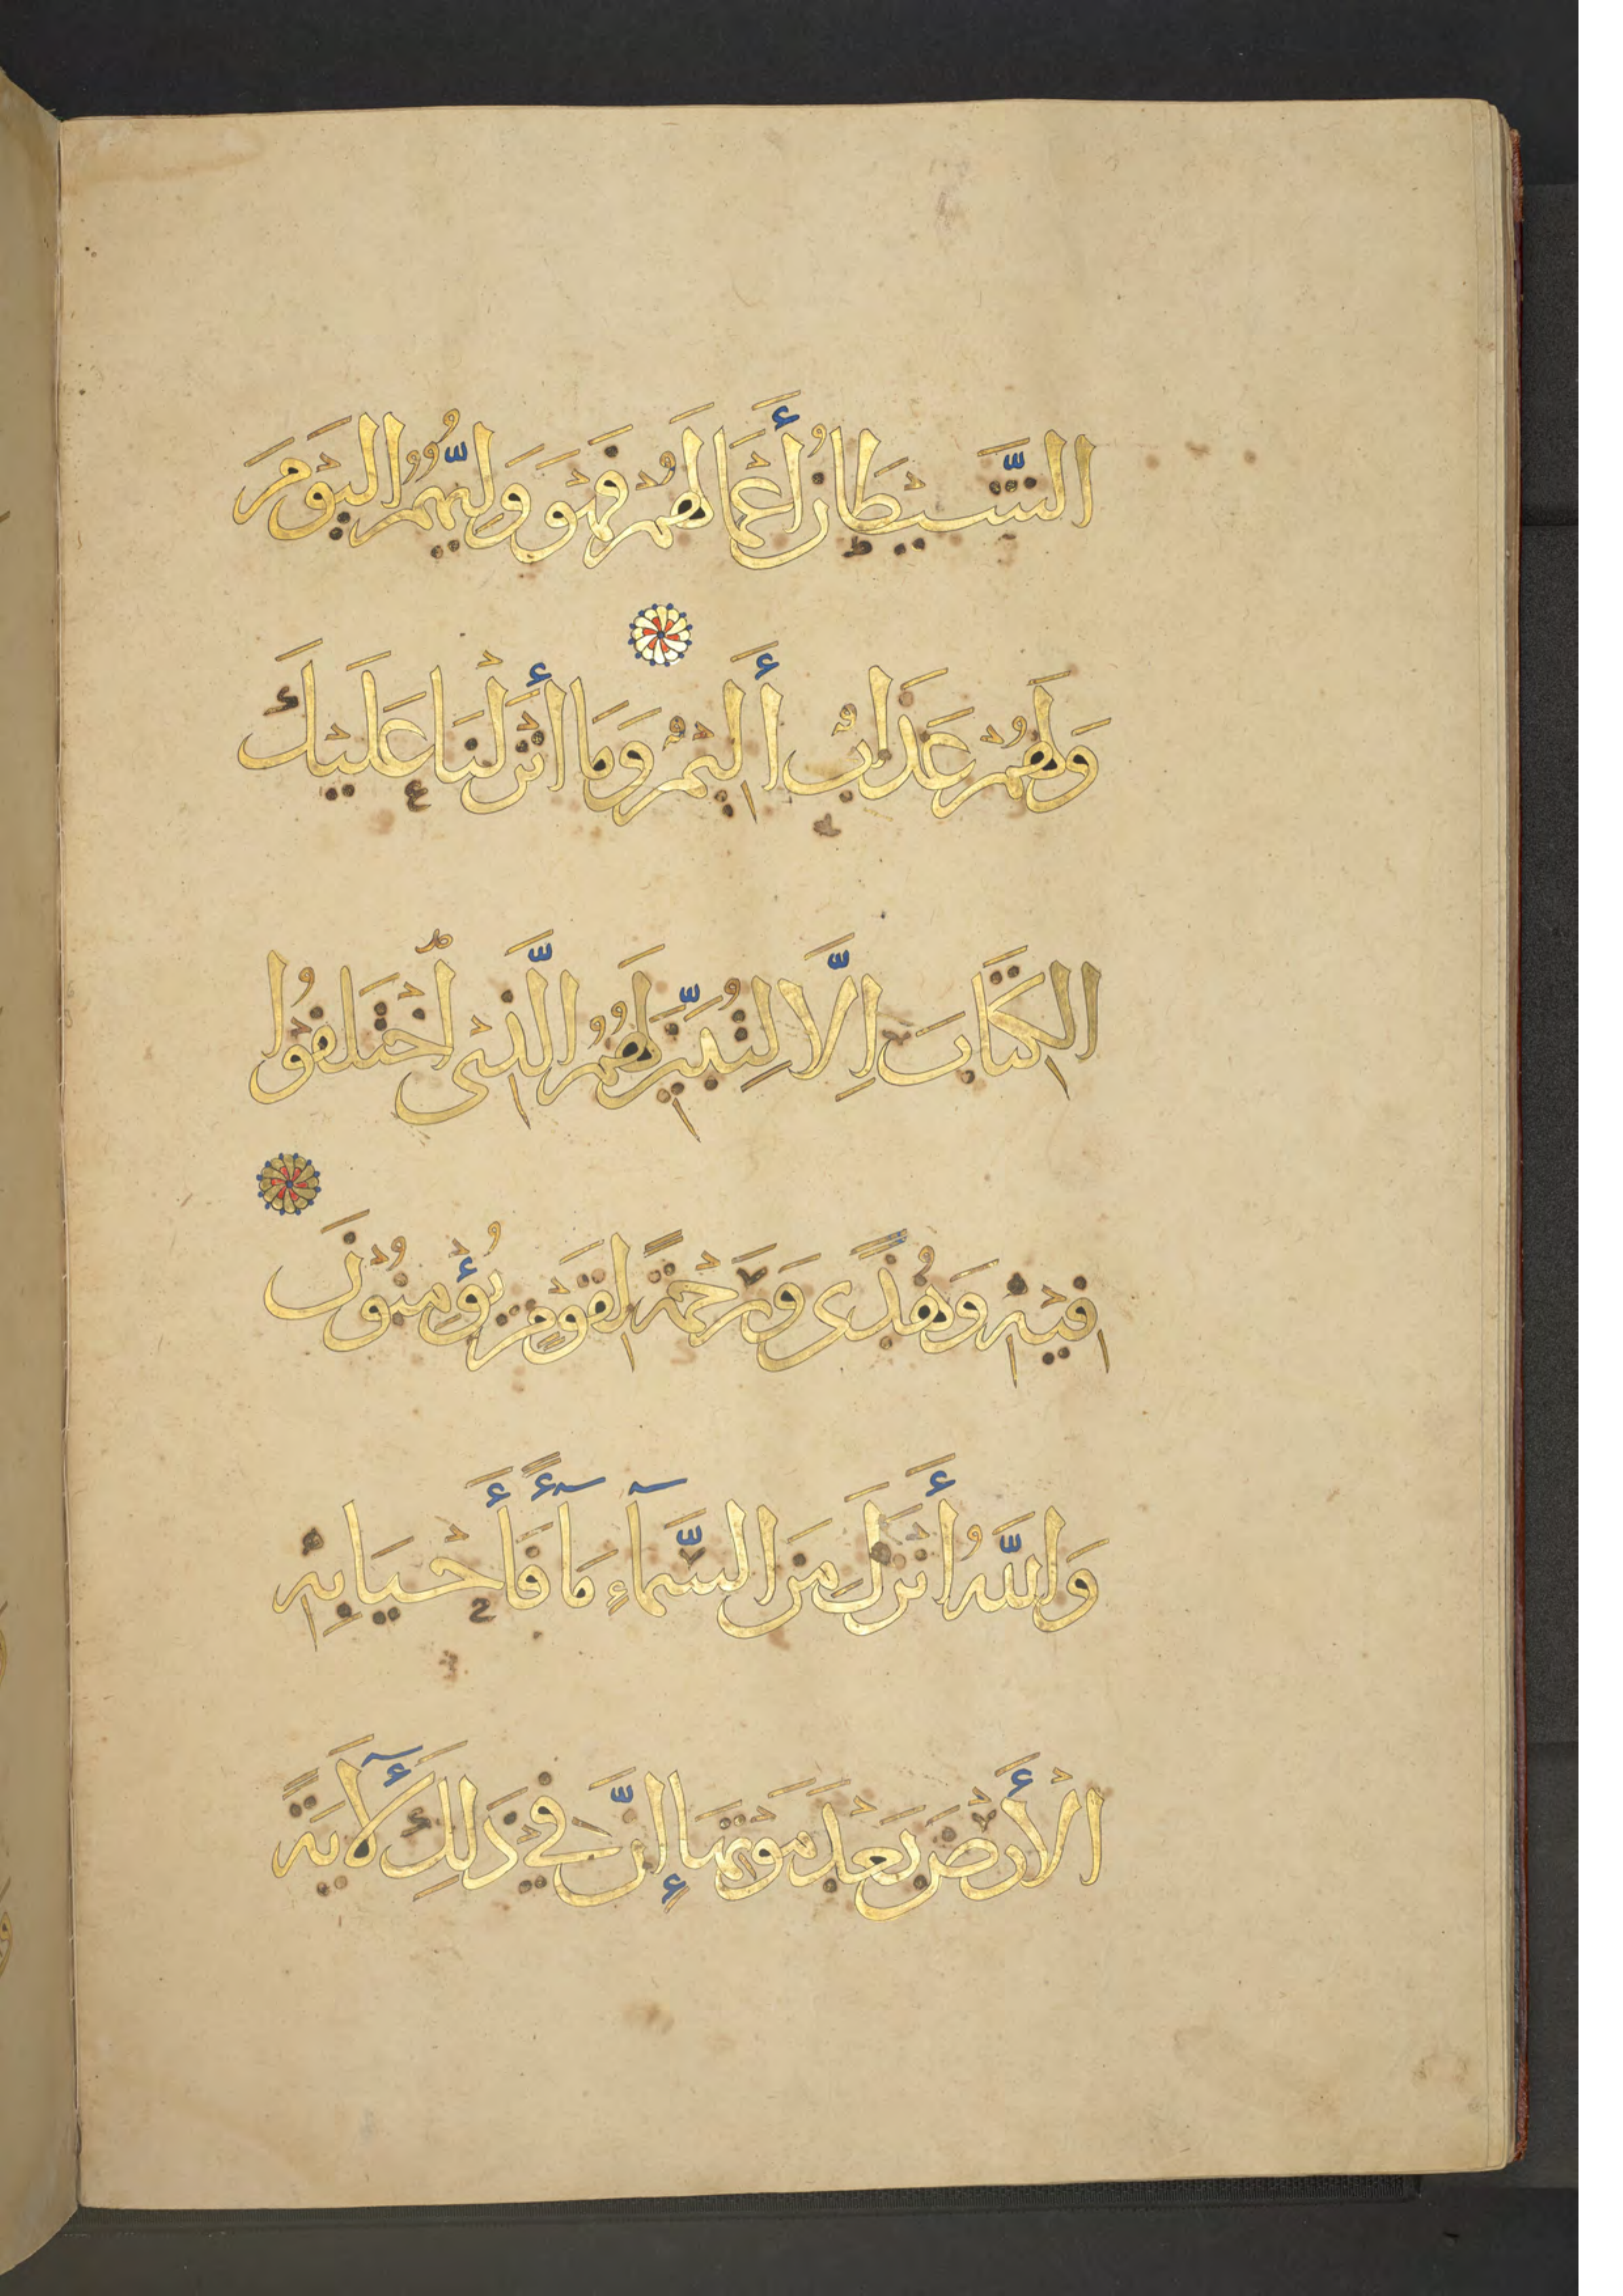 الشَّيْطَانُ أَعْمَالَهُمْ فَهُوَ وَلِيُّهُمُ الْيَوْمَ
وَلَهُمْ عَذَابٌ أَلِيمٌ وَمَا أَنْزَلْنَا عَلَيْكَ
الكِتَابَ اِلَّا لِتُبَيِّنَ لَهُمُ الَّذِي اخْتَلَفُوا
فِيْهِ وَهُدًى وَرَحْمَةً لِقَوْمٍ يُؤْمِنُوْنَ
وَاللَّهُ أَنْزَلَ مِنَ السَّمَآءِ مَآءً فَأَحْيَا بِهِ
الْأَرْضَ بَعْدَ مَوْتِهَا إِنَّ فِي ذَلِكَ لَآيَةً